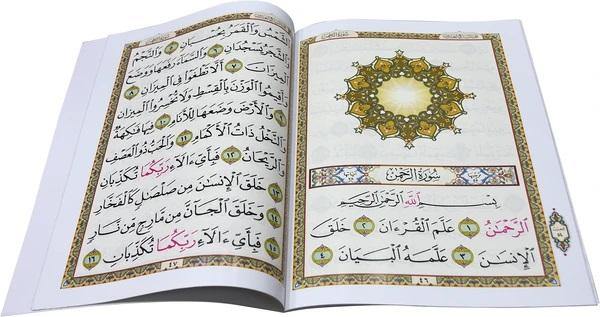 سُورَةُ الرَّحْمٰن
بِسْمِ ٱللَّهِ ٱلرَّحْمَٰنِ ٱلرَّحِيمِ
ٱلرَّحْمَٰنُ ١ عَلَّمَ ٱلْقُرْءَانَ ٢ خَلَقَ
ٱلْإِنسَٰنَ ٣ عَلَّمَهُ ٱلْبَيَانَ ٤
٤٦
ٱلشَّمْسُ وَٱلْقَمَرُ بِحُسْبَانٍ ٥ وَٱلنَّجْمُ
وَٱلشَّجَرُ يَسْجُدَانِ ٦ وَٱلسَّمَآءَ رَفَعَهَا وَوَضَعَ
ٱلْمِيزَانَ ٧ أَلَّا تَطْغَوْا۟ فِى ٱلْمِيزَانِ ٨
وَأَقِيمُوا۟ ٱلْوَزْنَ بِٱلْقِسْطِ وَلَا تُخْسِرُوا۟ ٱلْمِيزَانَ
٩ وَٱلْأَرْضَ وَضَعَهَا لِلْأَنَامِ ١٠ فِيهَا فَٰكِهَةٌ
وَٱلنَّخْلُ ذَاتُ ٱلْأَكْمَامِ ١١ وَٱلْحَبُّ ذُو ٱلْعَصْفِ
وَٱلرَّيْحَانُ ١٢ فَبِأَىِّ ءَالَآءِ رَبِّكُمَا تُكَذِّبَانِ
١٣ خَلَقَ ٱلْإِنسَٰنَ مِن صَلْصَٰلٍ كَٱلْفَخَّارِ
١٤ وَخَلَقَ ٱلْجَآنَّ مِن مَّارِجٍ مِّن نَّارٍ
١٥ فَبِأَىِّ ءَالَآءِ رَبِّكُمَا تُكَذِّبَانِ ١٦
٤٧